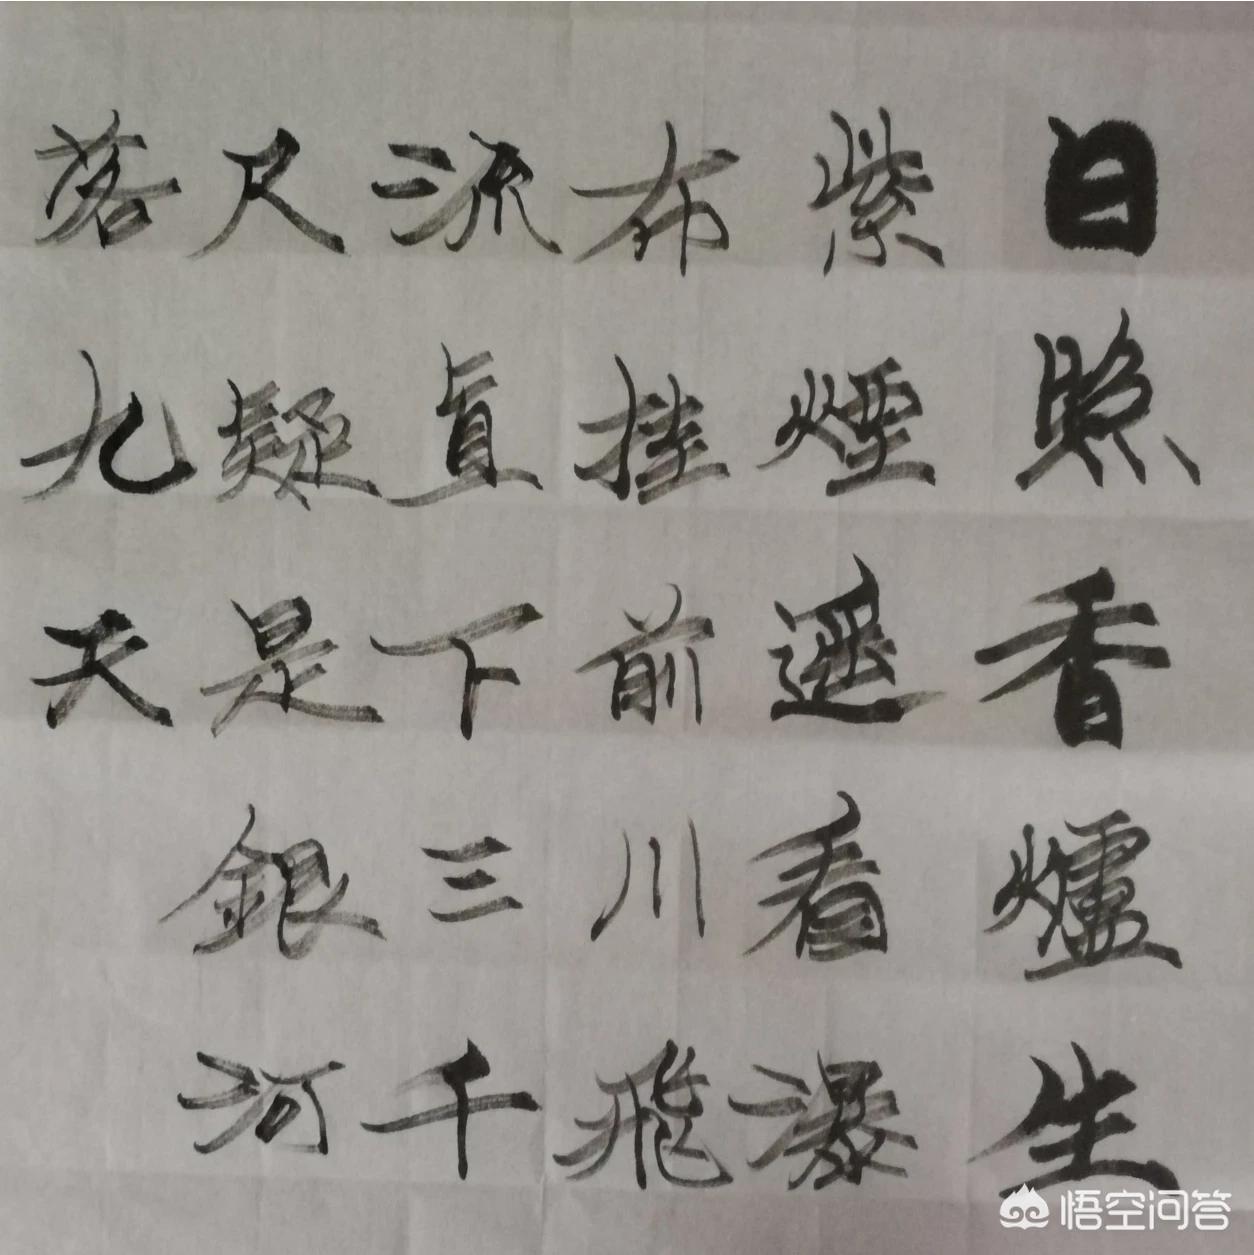 日照香爐生
紫煙遥看瀑
布挂前川飛
流直下三千
尺疑是銀河
落九天
悟空问答